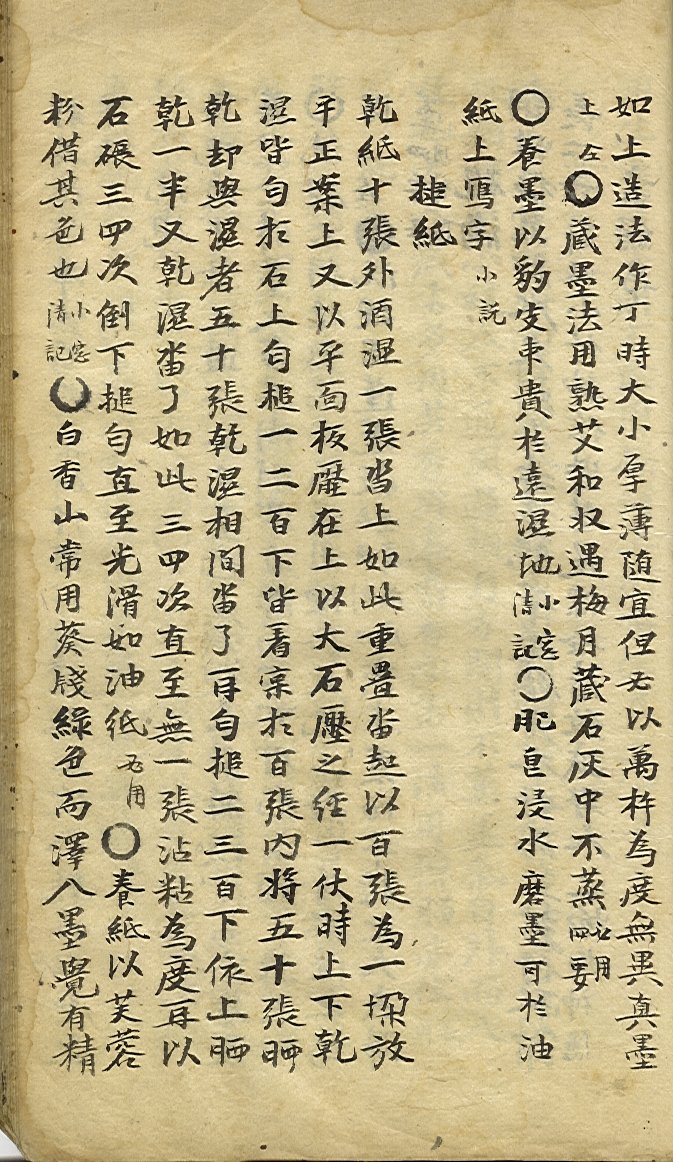 如上造法作丁時大小厚薄随宜但必以萬杵為度無異真墨
上仝〇藏墨法用熟艾和收遇梅月藏石灰中不蒸必用四要
〇養墨以豹皮束貴於遠濕地小窓清記〇肥皂浸水磨墨可於油
紙上寫字小說
搥紙
乾紙十張外酒濕一張畓上如此重疊畓起以百張為一垜放
平正案上又以平面板壓在上以大石壓之經一伏時上下乾
濕皆匀於石上匀搥一二百下皆着宲於百張內將五十張晒
乾却與濕者五十張乾濕相間畓了再匀搥二三百下依上晒
乾一半又乾濕畓了如此三四次直至無一張沾粘為度再以
石碾三四次倒下搥匀直至光滑如油紙必用〇養紙以芙蓉
粉借其色也小窓清記〇白香山常用葵牋綠色而澤入墨覺有精